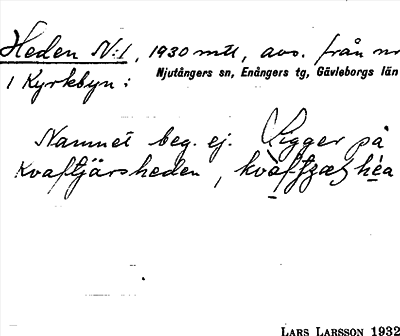 Heden N:1, 1930 mtl, avs. från nr
1 Kyrkbyn: Njutångers sn, Enångers tg, Gävleborgs län
Namnet beg. ej. Ligger på
Kvaftjärsheden,
LARS LARSSON 1932